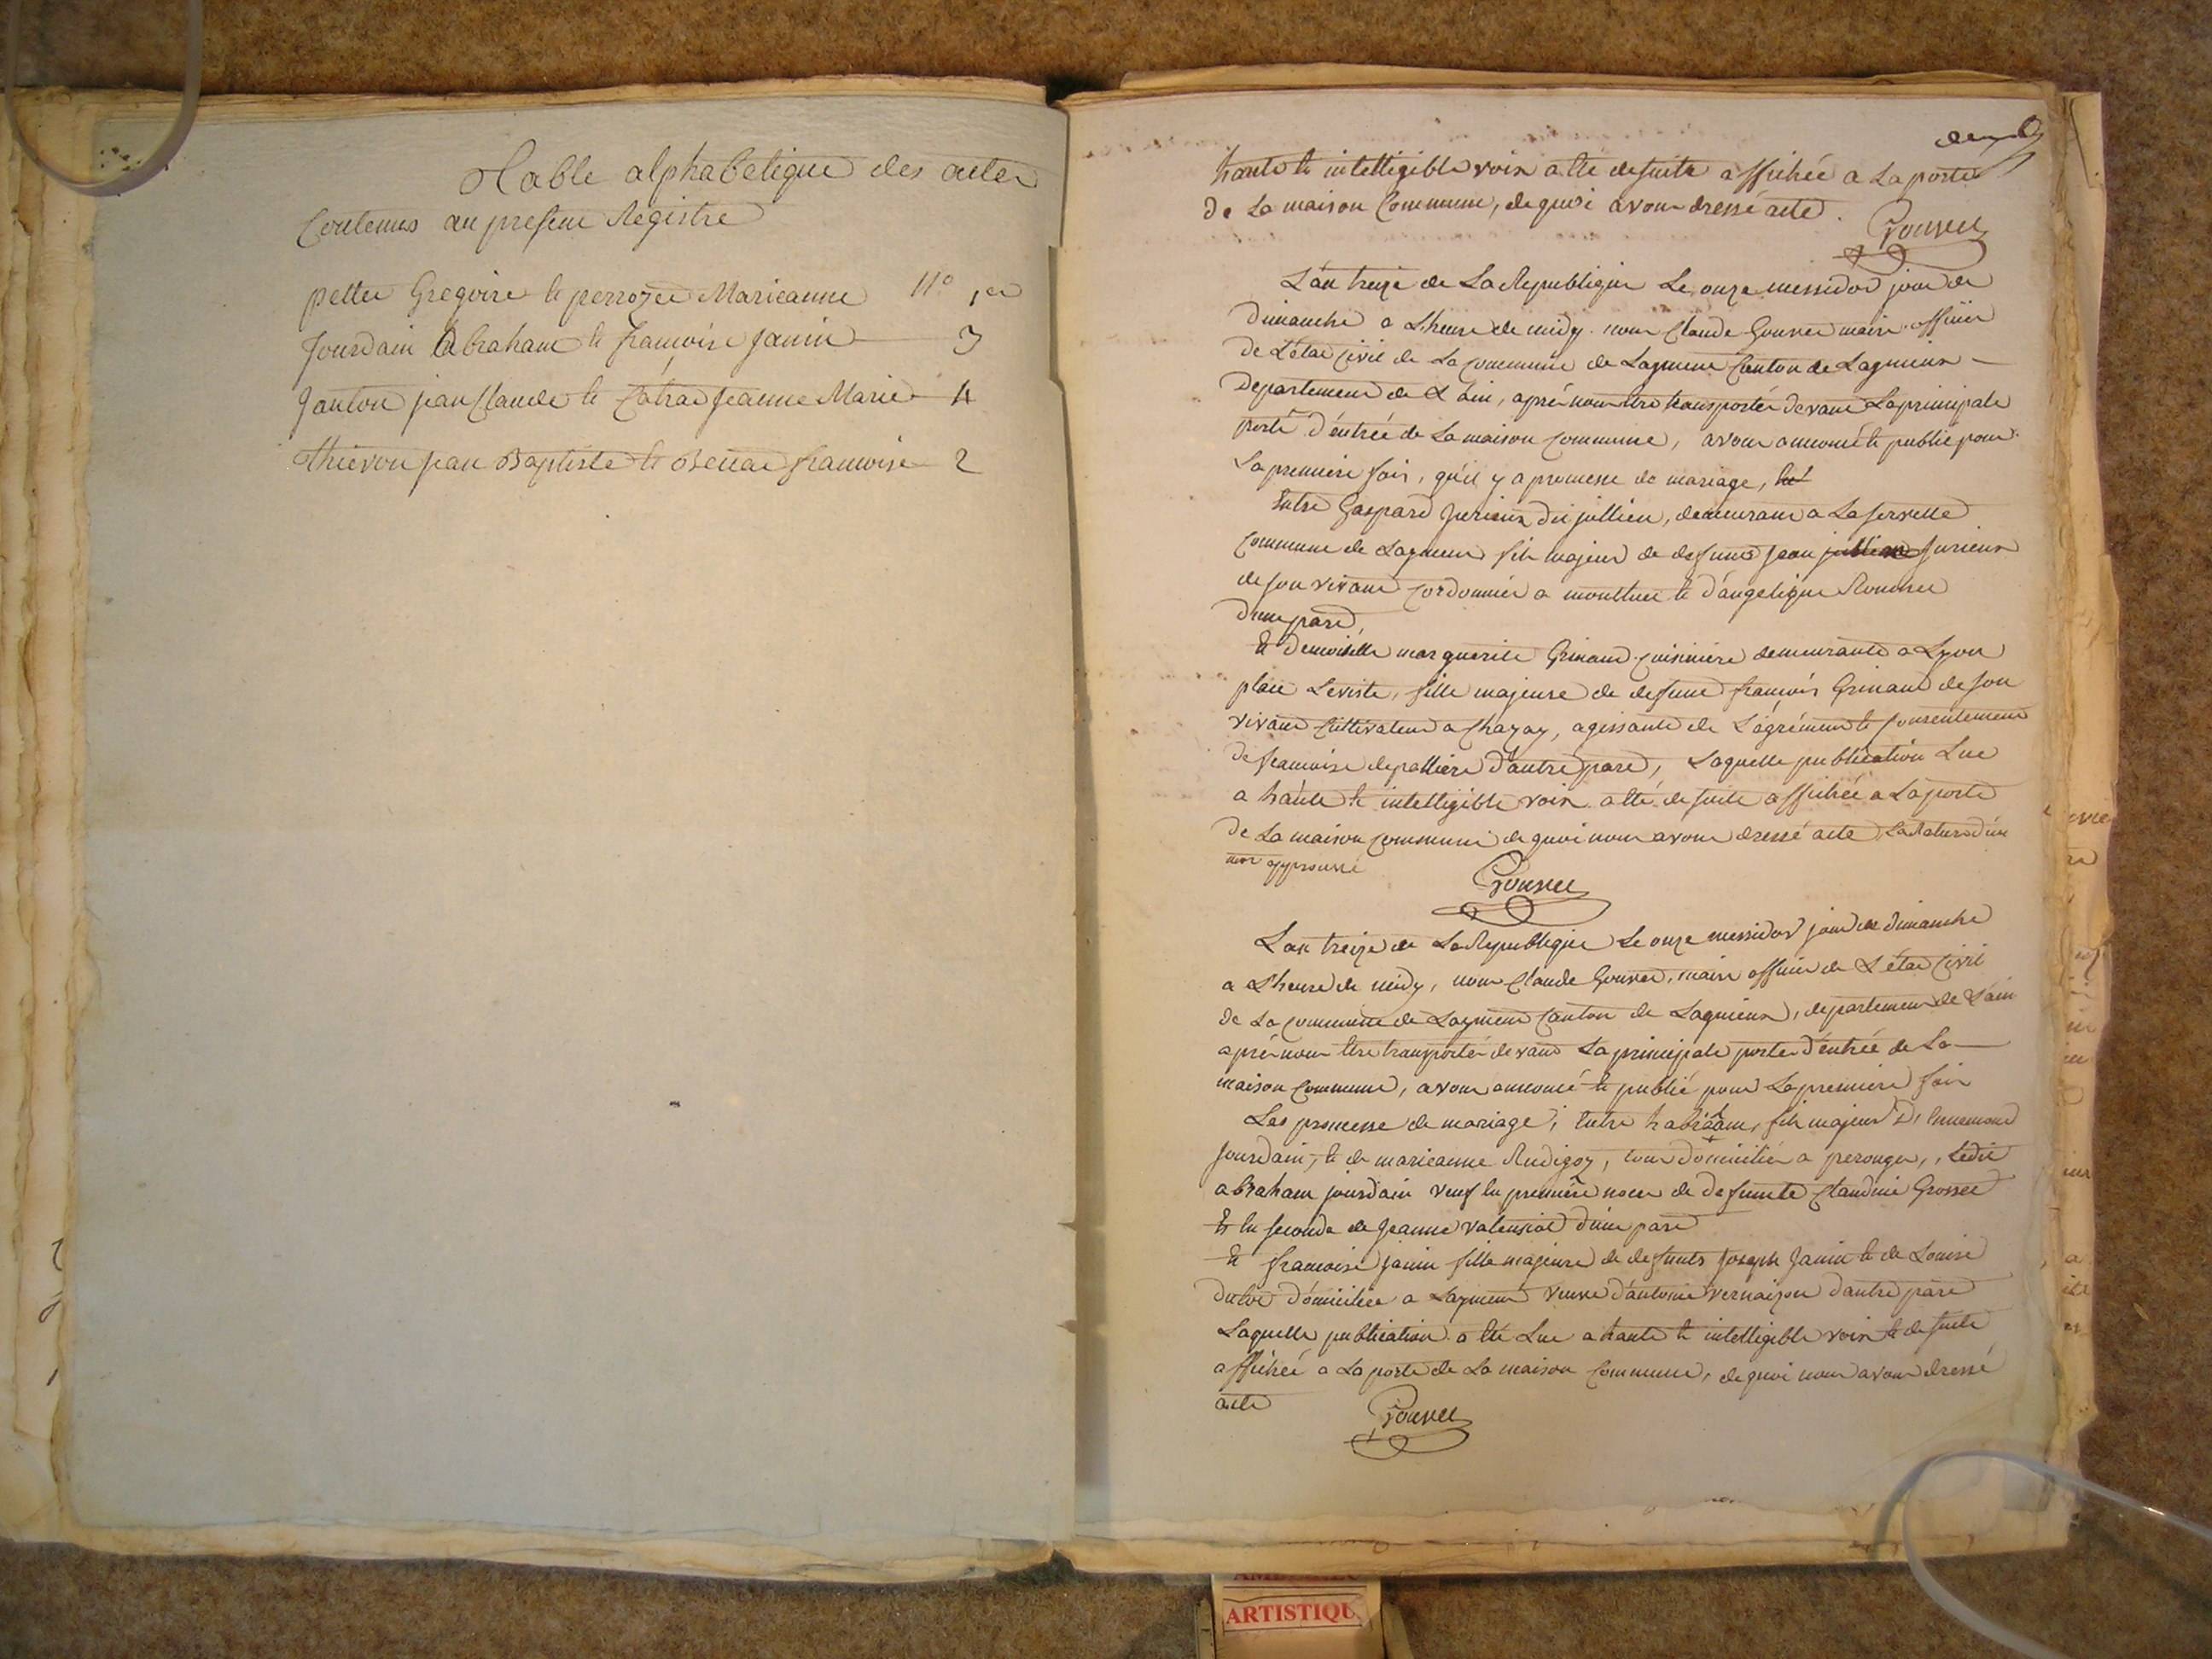 Table alphabetique des actes
Contenus au present Registre
pettet Gregoire et perrozet Marieanne N° 1er
Jourdain Abraham et francoise Janin 3
Janton jean Claude et Catrat Jeanne Marie 4
thievon jean Baptiste et Bettat francoise 2
haute et intelligible voix a été desuite affichée a La porte
de La maison Commune, de quoi avons dressé acte.
Gouvet
L'an treize de La Republique Le onze messidor jour de
Dimanche a L'heure de midy. nous Claude Gouvet maire officier
de L'état Civil de La Commune de Lagnieu Canton de Lagnieux
Departement de L'ain, après nous être transportés devant La principale
porte d'éntrée de La maison Commune, avons annoncé et publié pour
La premiere fois, qu'il y a promesse de mariage,
Entre Gaspard Jurieux dit jullien, demeurant a La servette
Commune de Laymen fils majeur de defunt Jean Jurieux
de son vivant Cordonnier a montluel et d'angelique
d'une part,
Et Demoiselle marguerite Grinand Cuisiniere demeurante a Lyon
place Leviste, fille majeure de defunt françois Grinand de son
vivant Cultivateur a Chazay, agissante de L'agrément et Consentement
de francoise depalliere d'autre part, Laquelle publication Lue
a haute et intelligible voix a été de suite affichée a La porte
de La maison Commune de quoi nous avons dressé acte, La Rature d'un
mot approuvé
Gouvet
L'an treize de La Republique Le onze messidor jour de dimanche
a L'heure de midy, nous Claude Gouvet, maire officier de L'état Civil
de La Commune de Laymen Canton de Lagnieux, departement de L'ain
après nous être transportés devant La principale porte d'éntrée de La
maison Commune, avons annoncé et publié pour La premiere fois
Les promesse de mariage, Entre habraham, fils majeur d'Ennemond
Jourdain, et de marieanne Rudigoz, tous domiciliés a perouges, Ledit
abraham jourdain veuf En premiere noces de defunte Claudine Grosset
Et En seconde de Jeanne valensiot d'une part
Et francoise janin fille majeure de defunts Joseph Janin et de Louise
domiciliée a Laymen veuve d'antoine vernaizon d'autre part
Laquelle publication a été Lue a haute et intelligible voix et de suite
affichée a La porte de La maison Commune, de quoi nous avons dressé
acte
Gouvet
ARTISTIQU